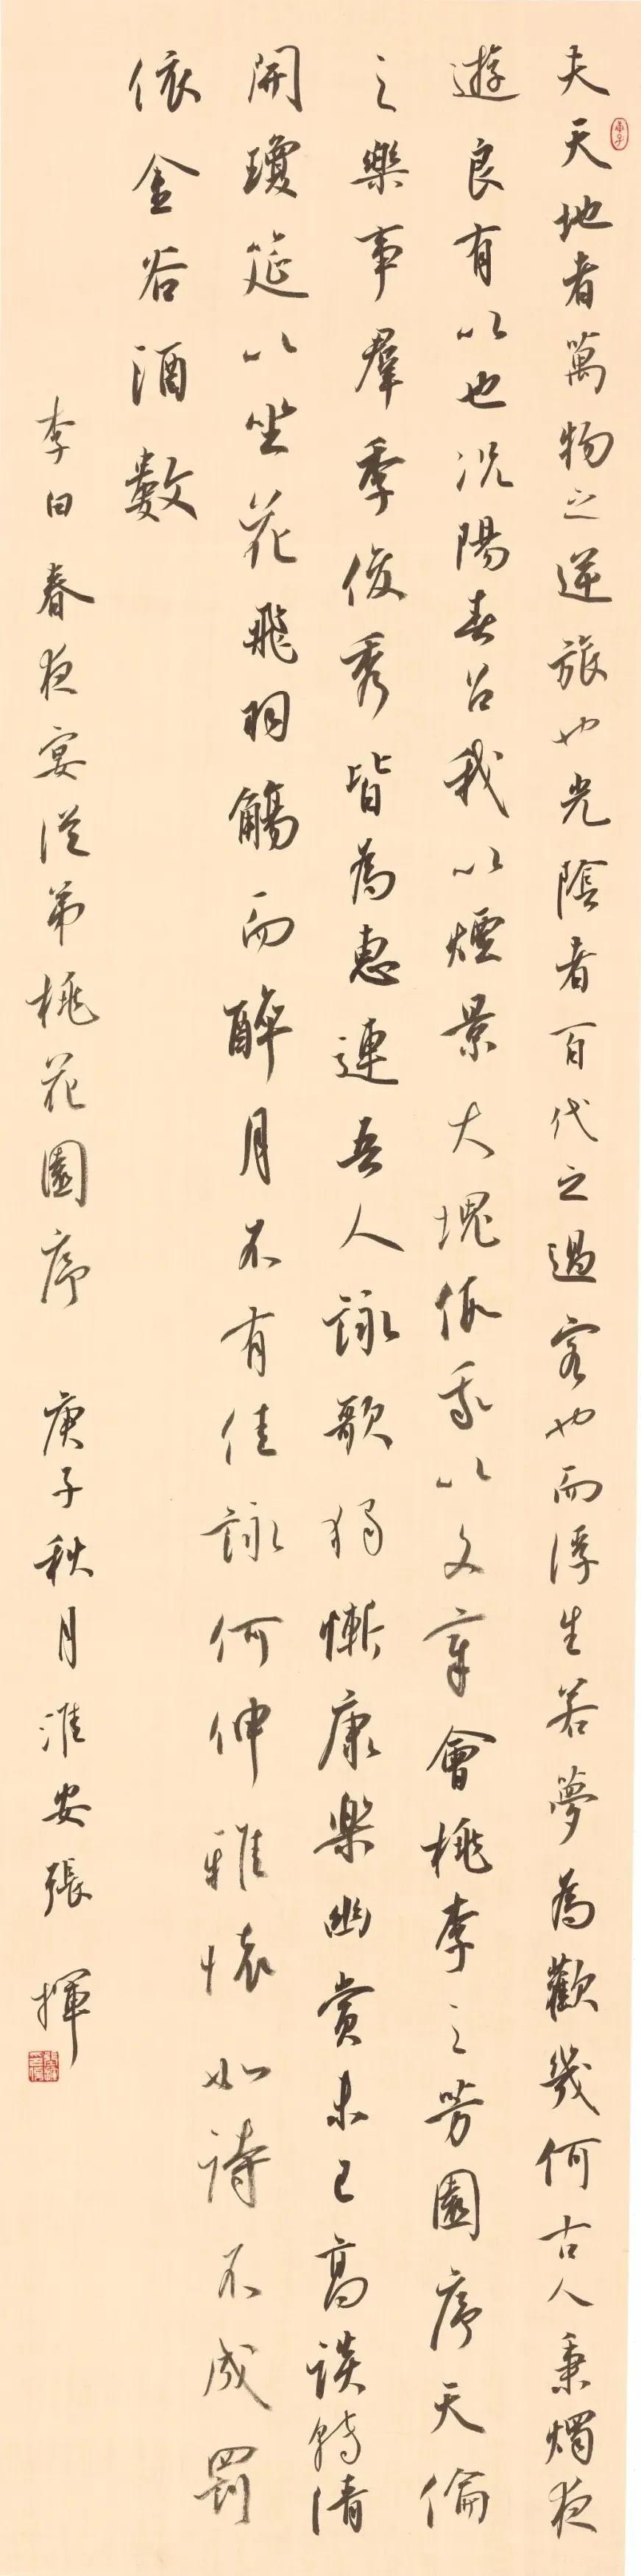 夫天地者萬物之逆旅也光陰者百代之過客也而浮生若夢為歡幾何古人秉燭夜
遊良有以也況陽春召我以煙景大塊假我以文章會桃李之芳園序天倫
之樂事群季俊秀皆為惠連吾人詠歌獨慚康樂幽賞未已高談轉清
開瓊筵以坐花飛羽觴而醉月不有佳詠何伸雅懷如詩不成罰
依金谷酒數
李白春夜宴從弟桃花園序 庚子秋月淮安張揮